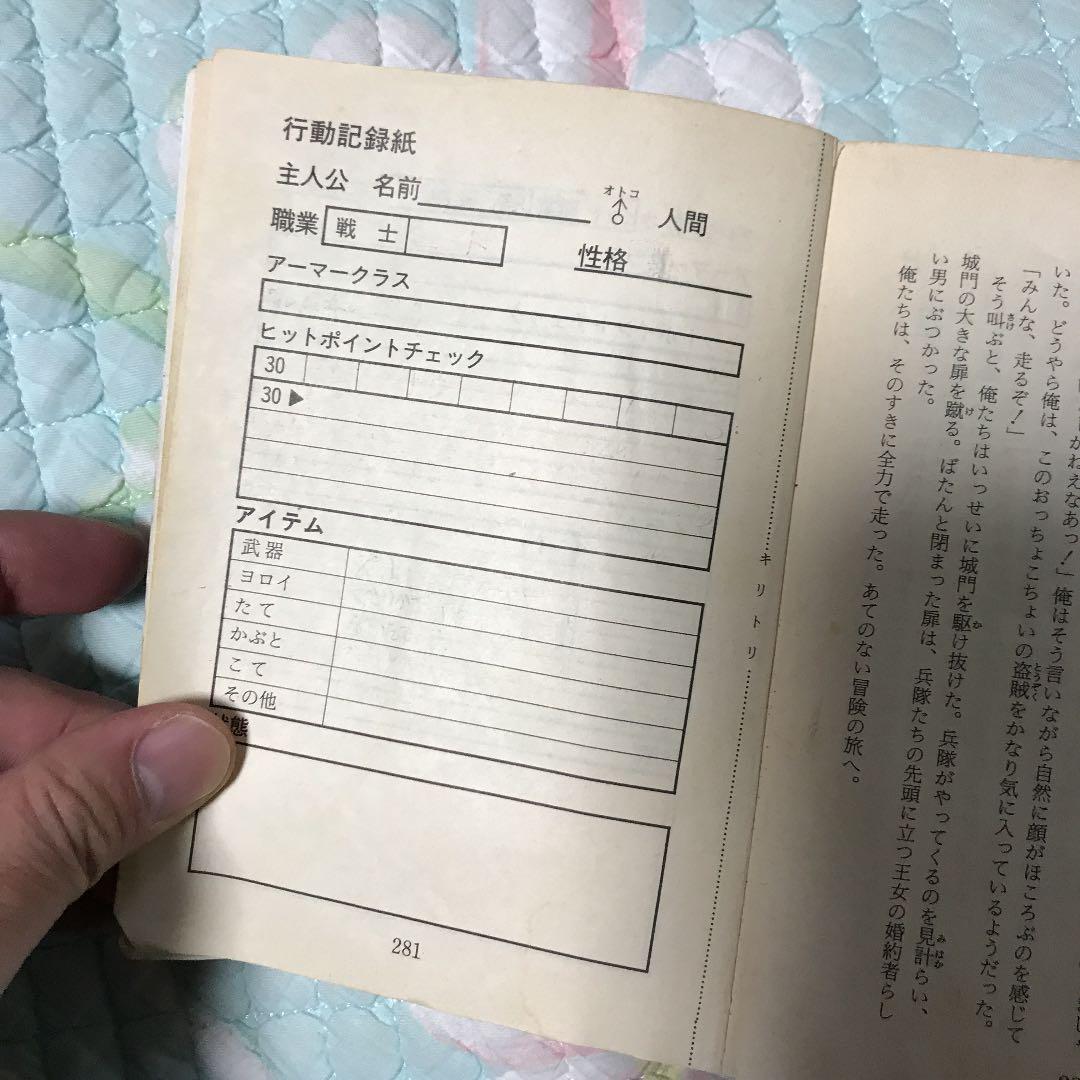 行動記録紙
主人公 名前
オトコ
人間
職業 戦士
性格
アーマークラス
ヒットポイントチェック
30
30▶
アイテム
武器
ヨロイ
たて
かぶと
こて
その他
状態
281
キリトリ
いた。どうやら俺は、このおっちょこちょいの盗賊をかなり気に入っているようだった。
とうぞく
「みんな、走るぞ！」
そう叫ぶと、俺たちはいっせいに城門を駆け抜けた。兵隊がやってくるのを見計らい、
さけ
か
みはか
城門の大きな扉を蹴る。ばたんと閉まった扉は、兵隊たちの先頭に立つ王女の婚約者らし
け
い男にぶつかった。
俺たちは、そのすきに全力で走った。あてのない冒険の旅へ。